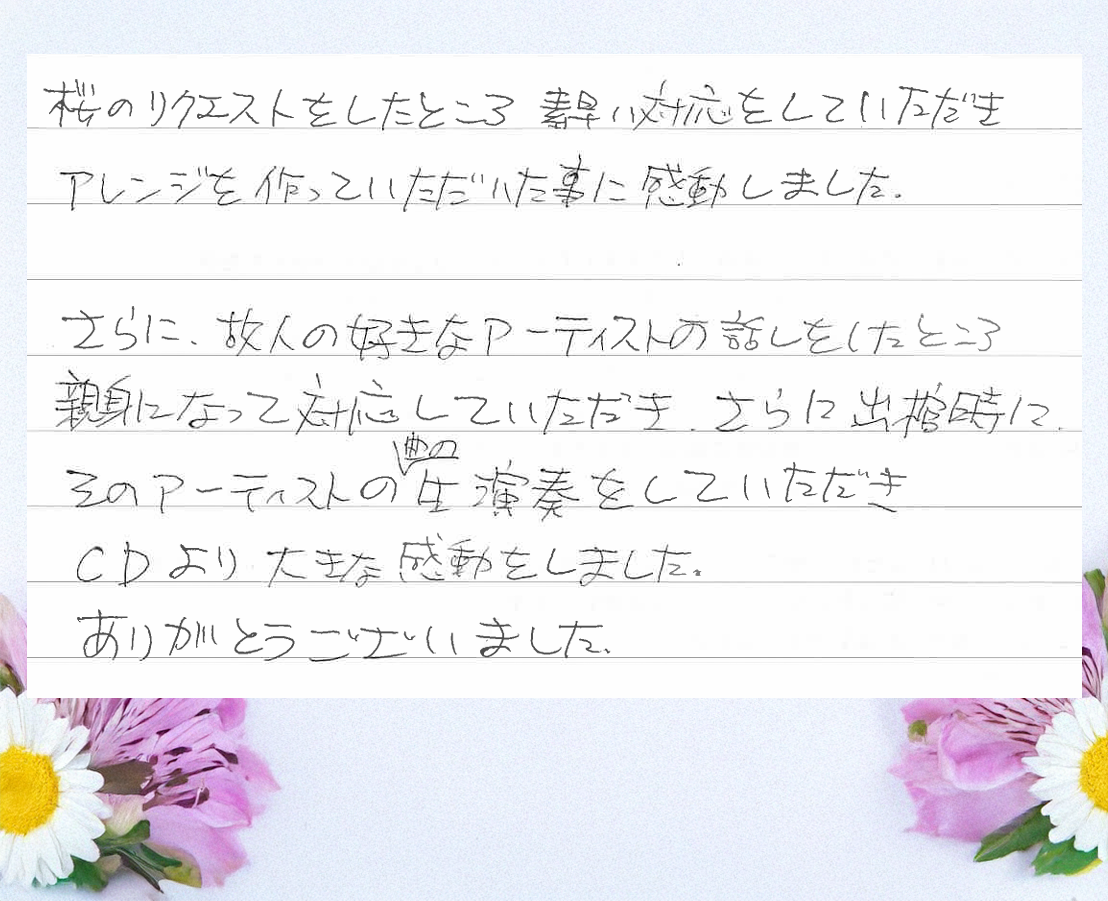 桜のリクエストをしたところ 素早い対応をしていただき
アレンジを作っていただいた事に感動しました。
さらに、故人の好きなアーティストの話しをしたところ
親身になって対応していただき、さらに出棺時に、
そのアーティストの曲の生演奏をしていただき
CDより大きな感動をしました。
ありがとうございました。